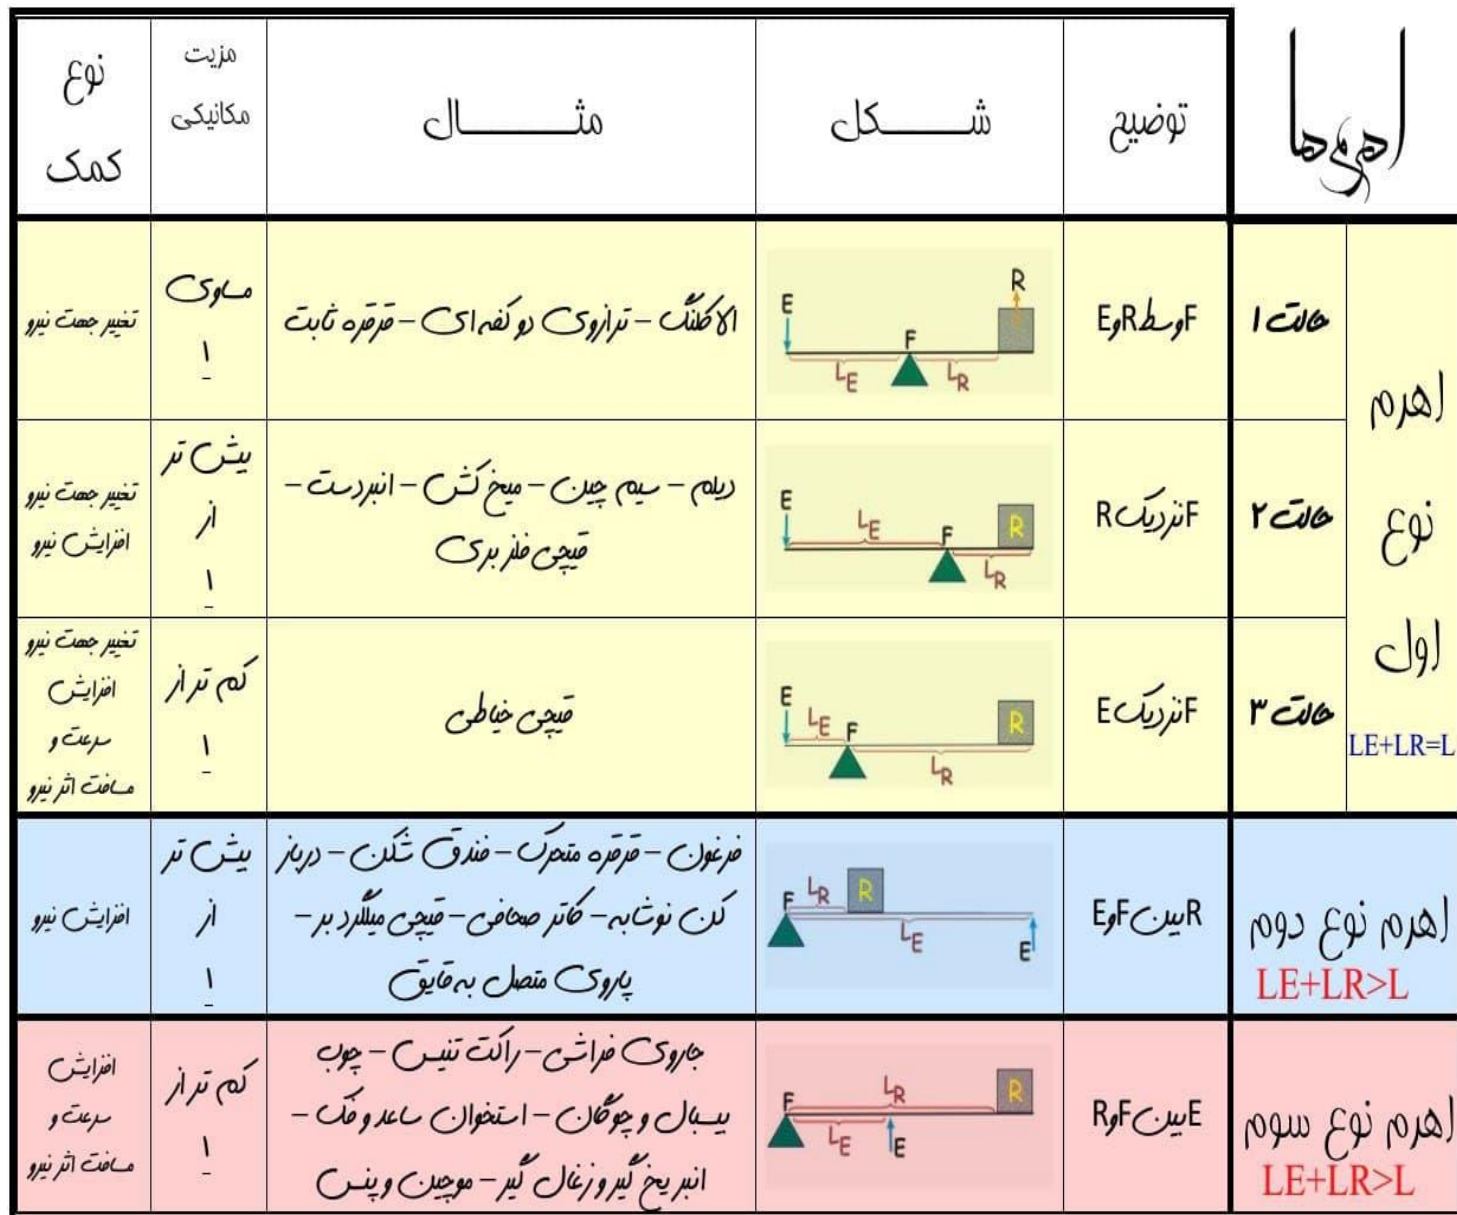 اهرم ها
توضیح
شـــکل
مثـــــال
مزیت
مکانیکی
نوع
کمک
اهرم
نوع
اول
LE+LR=L
حالت ۱
F وسط R و E
E
R
F
LE
LR
الاکلنگ – ترازوی دو کفه ای – قرقره ثابت
مساوی
۱
تغییر جهت نیرو
حالت ۲
F نزدیک R
E
LE
F
R
LR
دیلم – سیم چین – میخ کش – انبردست –
قیچی فلز بری
بیش تر
از
۱
تغییر جهت نیرو
افزایش نیرو
حالت ۳
F نزدیک E
E
LE
F
R
LR
قیچی خیاطی
کم تر از
۱
تغییر جهت نیرو
افزایش
سرعت و
مسافت اثر نیرو
اهرم نوع دوم
LE+LR>L
R بین F و E
F
LR
R
LE
E
فرغون – قرقره متحرک – فندق شکن – درباز
کن نوشابه – کاتر صحافی – قیچی میلگرد بر –
پاروی متصل به قایق
بیش تر
از
۱
افزایش نیرو
اهرم نوع سوم
LE+LR>L
E بین F و R
F
LR
R
LE
E
جاروی فراشی – راکت تنیس – چوب
بیسبال و چوگان – استخوان ساعد و فک –
انبر یخ گیر و زغال گیر – موچین و پنس
کم تر از
۱
افزایش
سرعت و
مسافت اثر نیرو